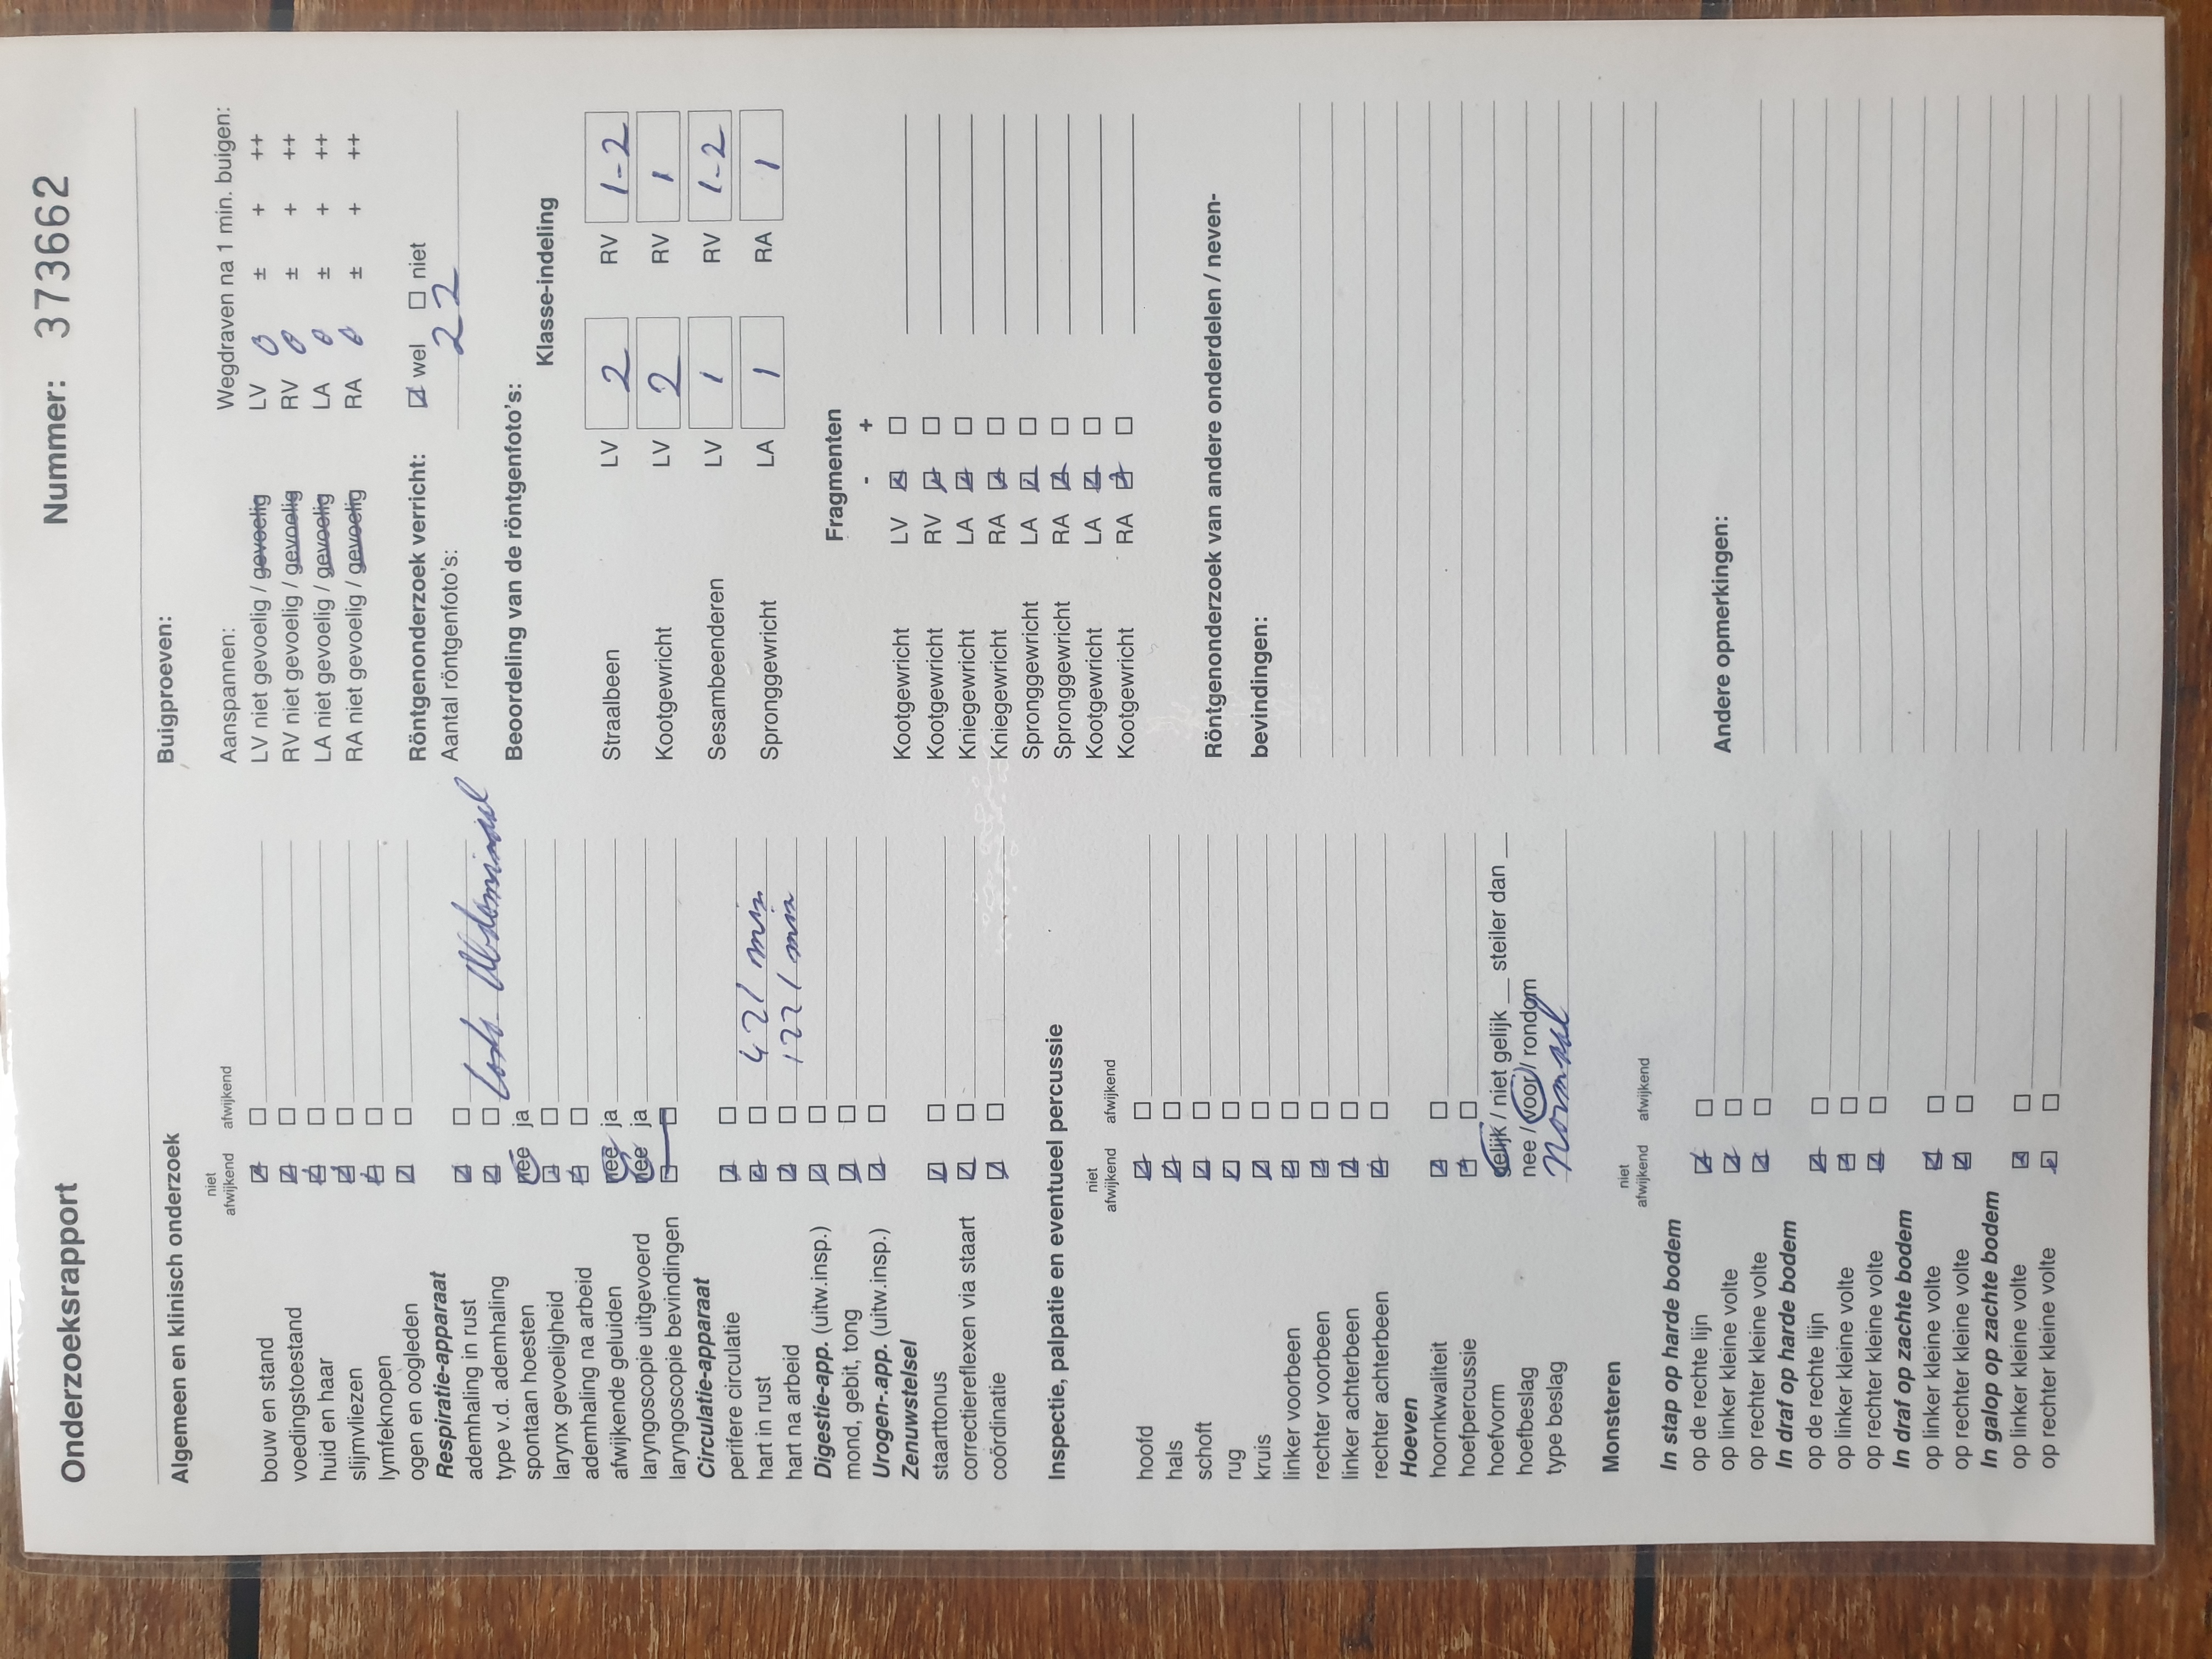 Onderzoeksrapport
Nummer: 373662
Algemeen en klinisch onderzoek
niet afwijkend afwijkend
bouw en stand
voedingstoestand
huid en haar
slijmvliezen
lymfeknopen
ogen en oogleden
Respiratie-apparaat
ademhaling in rust
type v.d. ademhaling Costo Abdominaal
spontaan hoesten nee ja
larynx gevoeligheid
ademhaling na arbeid
afwijkende geluiden nee ja
laryngoscopie uitgevoerd nee ja
laryngoscopie bevindingen
Circulatie-apparaat
perifere circulatie
hart in rust 42/min
hart na arbeid 122/min
Digestie-app. (uitw.insp.)
mond, gebit, tong
Urogen-.app. (uitw.insp.)
Zenuwstelsel
staarttonus
correctiereflexen via staart
coördinatie
Inspectie, palpatie en eventueel percussie
niet afwijkend afwijkend
hoofd
hals
schoft
rug
kruis
linker voorbeen
rechter voorbeen
linker achterbeen
rechter achterbeen
Hoeven
hoornkwaliteit
hoefpercussie
hoefvorm gelijk / niet gelijk __ steiler dan __
hoefbeslag nee / voor / rondom
type beslag normaal
Monsteren
niet afwijkend afwijkend
In stap op harde bodem
op de rechte lijn
op linker kleine volte
op rechter kleine volte
In draf op harde bodem
op de rechte lijn
op linker kleine volte
op rechter kleine volte
In draf op zachte bodem
op linker kleine volte
op rechter kleine volte
In galop op zachte bodem
op linker kleine volte
op rechter kleine volte
Buigproeven:
Aanspannen: Wegdraven na 1 min. buigen:
LV niet gevoelig / gevoelig LV 0 ± + ++
RV niet gevoelig / gevoelig RV 0 ± + ++
LA niet gevoelig / gevoelig LA 0 ± + ++
RA niet gevoelig / gevoelig RA 0 ± + ++
Röntgenonderzoek verricht: wel niet
Aantal röntgenfoto's: 22
Beoordeling van de röntgenfoto's:
Klasse-indeling
Straalbeen LV 2 RV 1-2
Kootgewricht LV 2 RV 1
Sesambeenderen LV 1 RV 1-2
Spronggewricht LA 1 RA 1
Fragmenten
- +
Kootgewricht LV
Kootgewricht RV
Kniegewricht LA
Kniegewricht RA
Spronggewricht LA
Spronggewricht RA
Kootgewricht LA
Kootgewricht RA
Röntgenonderzoek van andere onderdelen / neven-
bevindingen:
Andere opmerkingen: